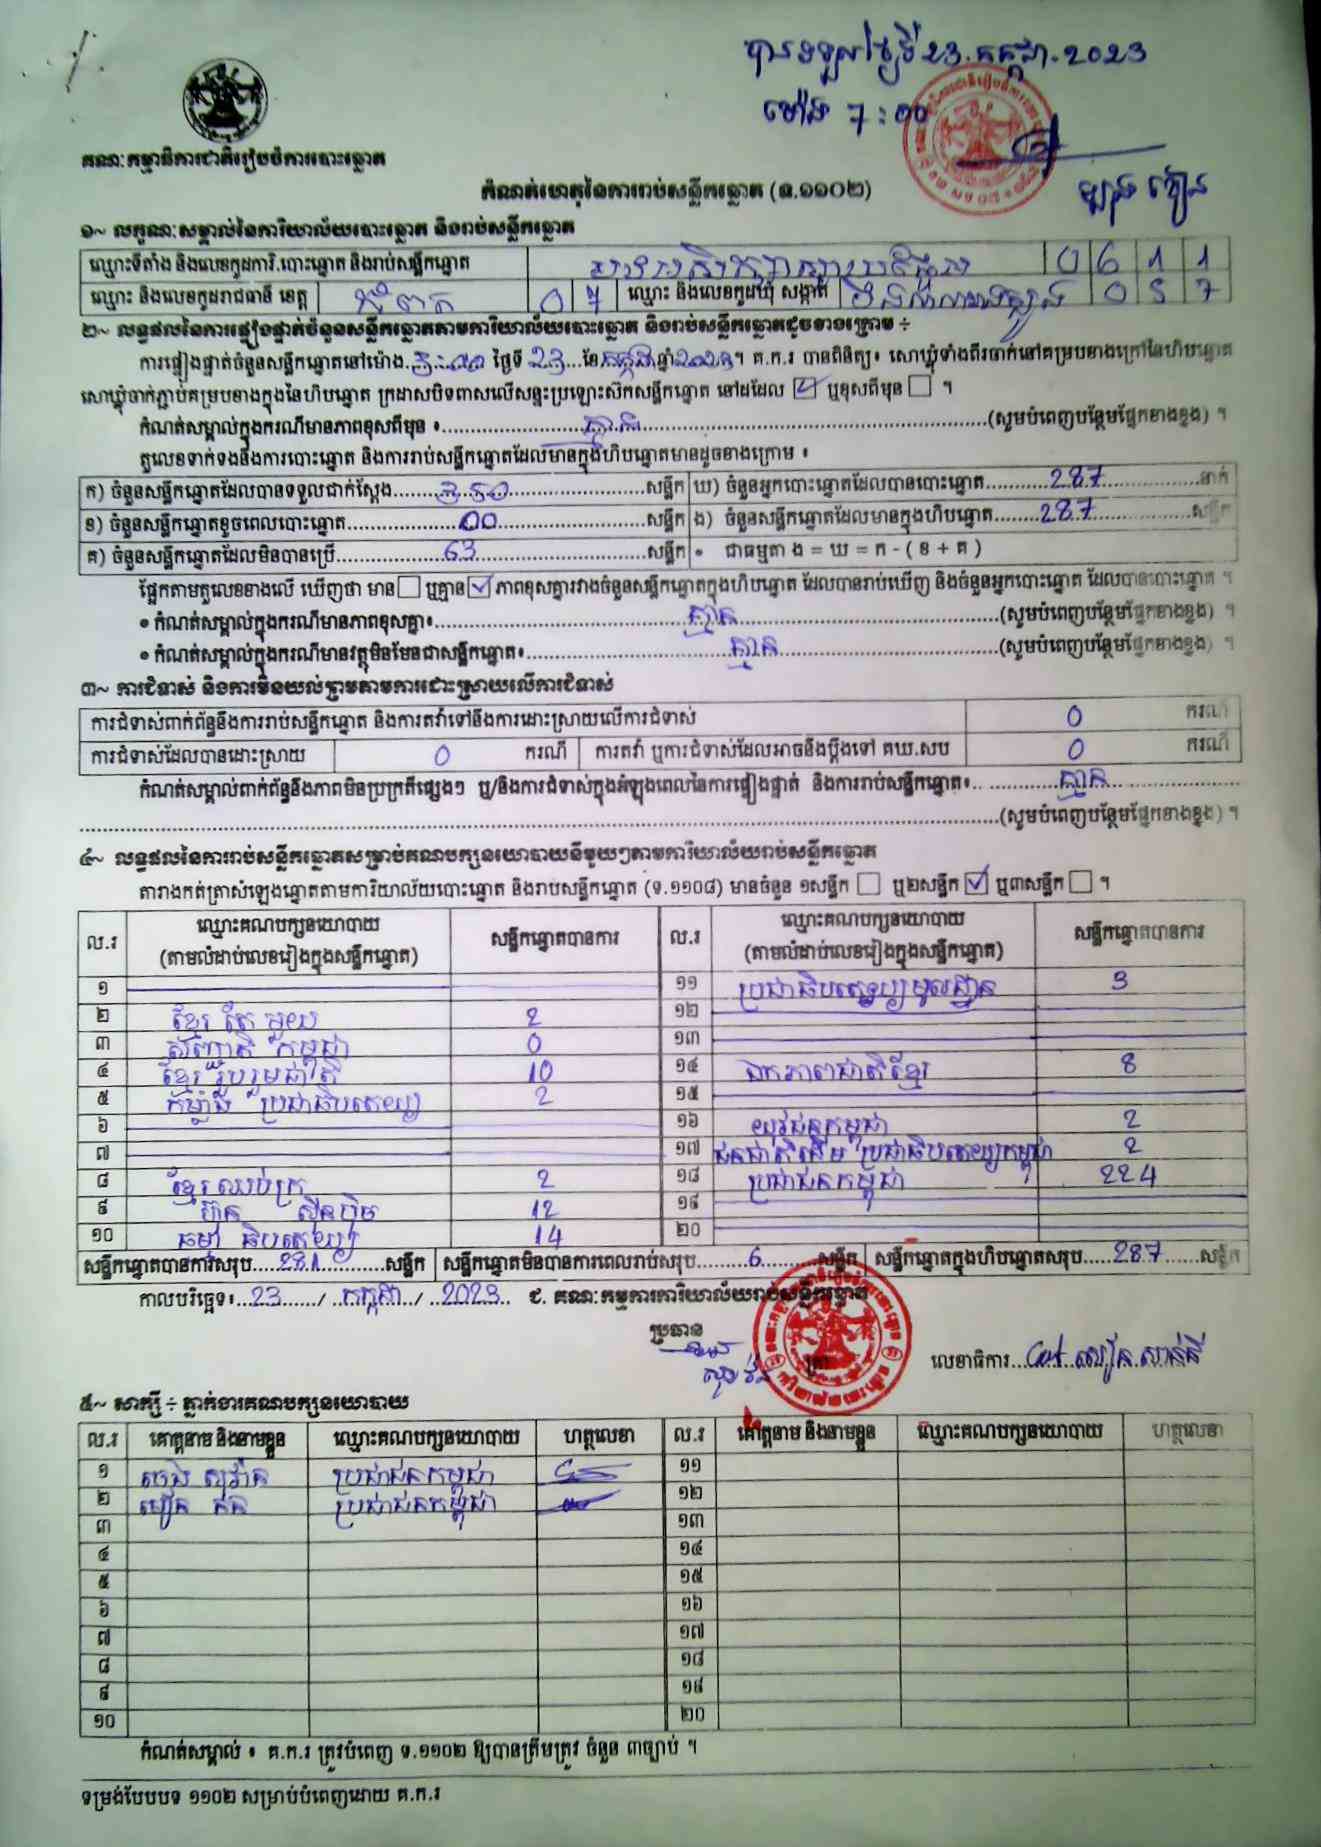 បានទទួលថ្ងៃទី 23.កក្កដា.2023
ម៉ោង 7:00
គណៈកម្មាធិការជាតិរៀបចំការបោះឆ្នោត
កំណត់ហេតុនៃការរាប់សន្លឹកឆ្នោត (ទ.១១០២)
១~ លក្ខណៈសម្គាល់នៃការិយាល័យបោះឆ្នោត និងរាប់សន្លឹកឆ្នោត
ឈ្មោះទីតាំង និងលេខកូដការិ.បោះឆ្នោត និងរាប់សន្លឹកឆ្នោត 0 6 1 1
ឈ្មោះ និងលេខកូដរាជធានី ខេត្ត 0 7 ឈ្មោះ និងលេខកូដឃុំ សង្កាត់ 0 5 7
២~ លទ្ធផលនៃការផ្ទៀងផ្ទាត់ចំនួនសន្លឹកឆ្នោតតាមការិយាល័យបោះឆ្នោត និងរាប់សន្លឹកឆ្នោតដូចខាងក្រោម ÷
ការផ្ទៀងផ្ទាត់ចំនួនសន្លឹកឆ្នោតនៅម៉ោង 3:00 ថ្ងៃទី 23 ខែ កក្កដា ឆ្នាំ 2023 ។ គ.ក.រ បានពិនិត្យ៖ សោឃ្លុំទាំងពីរចាក់នៅគម្របខាងក្រៅនៃហិបឆ្នោត
សោឃ្លុំចាក់ភ្ជាប់គម្របខាងក្នុងនៃហិបឆ្នោត ក្រដាសបិទពាសលើសន្ទះប្រឡោះស៊កសន្លឹកឆ្នោត នៅដដែល ☑ ឬខុសពីមុន ☐ ។
កំណត់សម្គាល់ក្នុងករណីមានភាពខុសពីមុន ៖ គ្មាន (សូមបំពេញបន្ថែមផ្នែកខាងខ្នង) ។
តួលេខទាក់ទងនឹងការបោះឆ្នោត និងការរាប់សន្លឹកឆ្នោតដែលមានក្នុងហិបឆ្នោតមានដូចខាងក្រោម ៖
ក) ចំនួនសន្លឹកឆ្នោតដែលបានទទួលជាក់ស្តែង 350 សន្លឹក ឃ) ចំនួនអ្នកបោះឆ្នោតដែលបានបោះឆ្នោត 287 នាក់
ខ) ចំនួនសន្លឹកឆ្នោតខូចពេលបោះឆ្នោត 00 សន្លឹក ង) ចំនួនសន្លឹកឆ្នោតដែលមានក្នុងហិបឆ្នោត 287 សន្លឹក
គ) ចំនួនសន្លឹកឆ្នោតដែលមិនបានប្រើ 63 សន្លឹក • ជាធម្មតា ង = ឃ = ក - ( ខ + គ )
ផ្អែកតាមតួលេខខាងលើ ឃើញថា មាន ☐ ឬគ្មាន ☑ ភាពខុសគ្នារវាងចំនួនសន្លឹកឆ្នោតក្នុងហិបឆ្នោត ដែលបានរាប់ឃើញ និងចំនួនអ្នកបោះឆ្នោត ដែលបានបោះឆ្នោត ។
• កំណត់សម្គាល់ក្នុងករណីមានភាពខុសគ្នា៖ គ្មាន (សូមបំពេញបន្ថែមផ្នែកខាងខ្នង) ។
• កំណត់សម្គាល់ក្នុងករណីមានវត្ថុមិនមែនជាសន្លឹកឆ្នោត៖ គ្មាន (សូមបំពេញបន្ថែមផ្នែកខាងខ្នង) ។
៣~ ការជំទាស់ និងការមិនយល់ព្រមតាមការដោះស្រាយលើការជំទាស់
ការជំទាស់ពាក់ព័ន្ធនឹងការរាប់សន្លឹកឆ្នោត និងការតវ៉ាទៅនឹងការដោះស្រាយលើការជំទាស់ 0 ករណី
ការជំទាស់ដែលបានដោះស្រាយ 0 ករណី ការតវ៉ា ឬការជំទាស់ដែលអាចនឹងប្តឹងទៅ គឃ.សប 0 ករណី
កំណត់សម្គាល់ពាក់ព័ន្ធនឹងភាពមិនប្រក្រតីផ្សេងៗ ឬ/និងការជំទាស់ក្នុងអំឡុងពេលនៃការផ្ទៀងផ្ទាត់ និងការរាប់សន្លឹកឆ្នោត៖ គ្មាន
(សូមបំពេញបន្ថែមផ្នែកខាងខ្នង) ។
៤~ លទ្ធផលនៃការរាប់សន្លឹកឆ្នោតសម្រាប់គណបក្សនយោបាយនីមួយៗតាមការិយាល័យរាប់សន្លឹកឆ្នោត
តារាងកត់ត្រាសំឡេងឆ្នោតតាមការិយាល័យបោះឆ្នោត និងរាប់សន្លឹកឆ្នោត (ទ.១១០៨) មានចំនួន ១សន្លឹក ☐ ឬ២សន្លឹក ☑ ឬ៣សន្លឹក ☐ ។
ល.រ ឈ្មោះគណបក្សនយោបាយ (តាមលំដាប់លេខរៀងក្នុងសន្លឹកឆ្នោត) សន្លឹកឆ្នោតបានការ ល.រ ឈ្មោះគណបក្សនយោបាយ (តាមលំដាប់លេខរៀងក្នុងសន្លឹកឆ្នោត) សន្លឹកឆ្នោតបានការ
១ ១១ ប្រជាធិបតេយ្យមូលដ្ឋាន 3
២ ខ្មែរតែមួយ 2 ១២
៣ សញ្ជាតិកម្ពុជា 0 ១៣
៤ ខ្មែររួបរួមជាតិ 10 ១៤ ឯកភាពជាតិខ្មែរ 8
៥ កម្លាំងប្រជាធិបតេយ្យ 2 ១៥
៦ ១៦ យុវជនកម្ពុជា 2
៧ ១៧ ជនជាតិដើមប្រជាធិបតេយ្យកម្ពុជា 2
៨ ខ្មែរឈប់ក្រ 2 ១៨ ប្រជាជនកម្ពុជា 224
៩ ហ៊្វុនស៊ិនប៉ិច 12 ១៩
១០ ធម្មាធិបតេយ្យ 14 ២០
សន្លឹកឆ្នោតបានការសរុប 281 សន្លឹក សន្លឹកឆ្នោតមិនបានការពេលរាប់សរុប 6 សន្លឹក សន្លឹកឆ្នោតក្នុងហិបឆ្នោតសរុប 287 សន្លឹក
កាលបរិច្ឆេទ៖ 23 / កក្កដា / 2023 ៩. គណៈកម្មការការិយាល័យរាប់សន្លឹកឆ្នោត
ប្រធាន
ត្រា លេខាធិការ
៥~ សាក្សី ÷ ភ្នាក់ងារគណបក្សនយោបាយ
ល.រ គោត្តនាម និងនាមខ្លួន ឈ្មោះគណបក្សនយោបាយ ហត្ថលេខា ល.រ គោត្តនាម និងនាមខ្លួន ឈ្មោះគណបក្សនយោបាយ ហត្ថលេខា
១ ប្រជាជនកម្ពុជា ១១
២ ប្រជាជនកម្ពុជា ១២
៣ ១៣
៤ ១៤
៥ ១៥
៦ ១៦
៧ ១៧
៨ ១៨
៩ ១៩
១០ ២០
កំណត់សម្គាល់ ៖ គ.ក.រ ត្រូវបំពេញ ទ.១១០២ ឱ្យបានត្រឹមត្រូវ ចំនួន ៣ច្បាប់ ។
ទម្រង់បែបបទ ១១០២ សម្រាប់បំពេញដោយ គ.ក.រ